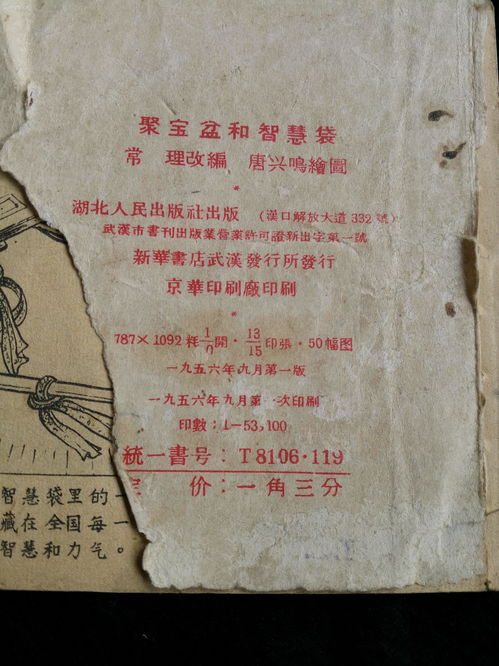 聚宝盆和智慧袋
常 理改編 唐兴鳴繪圖
湖北人民出版社出版 (漢口解放大道332號)
武漢市書刊出版業營業許可證新出字第一號
新華書店武漢發行所發行
京華印刷廠印刷
787×1092 粍 1/0 開·13/15印張·50幅图
一九五六年九月第一版
一九五六年九月第一次印刷
印數:1—53,100
統一書号:T8106·119
价:一角三分
智慧袋里的一
藏在全国每一
智慧和力气。